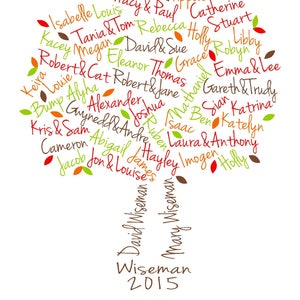 Tracy & Paul
Catherine
Isabelle
Louis
Stuart
Tania & Tom
Rebecca
Holly
Libby
Kacey
Megan
David & Sue
Grace
Robyn
Robert & Cat
Eleanor
Thomas
Emma & Lee
Keira
Louie
Robert & Jane
Gareth & Trudy
Bump
Alyha
Alexander
Joshua
Sian
Katrina
Gwynedd & Andre
Ben
Kris & Sam
Isaac
Katelyn
Abigail
Laura & Anthony
Cameron
James
Hayley
Imogen
Jacob
Jon & Louise
Holly
David Wiseman
Mary Wiseman
Wiseman
2015